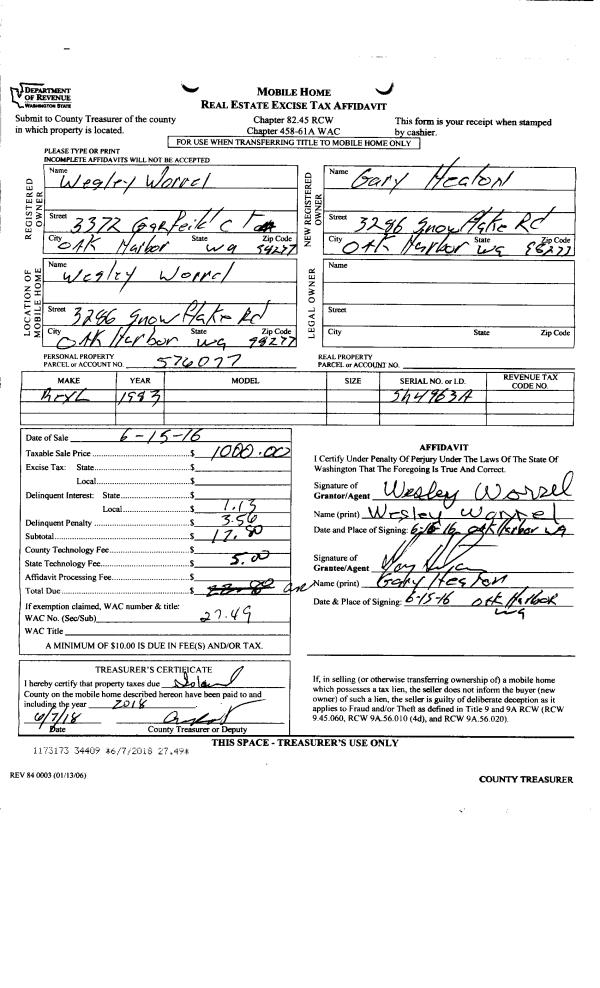 DEPARTMENT
OF REVENUE
WASHINGTON STATE
MOBILE HOME
REAL ESTATE EXCISE TAX AFFIDAVIT
Submit to County Treasurer of the county
in which property is located.
Chapter 82.45 RCW
Chapter 458-61A WAC
This form is your receipt when stamped
by cashier.
FOR USE WHEN TRANSFERRING TITLE TO MOBILE HOME ONLY
PLEASE TYPE OR PRINT
INCOMPLETE AFFIDAVITS WILL NOT BE ACCEPTED
REGISTERED OWNER
Name Wesley Worrel
Street 3372 Garfeild CT
City OAK Harbor State wa Zip Code 98277
NEW REGISTERED OWNER
Name Gary Heaton
Street 3286 Snow flake Rd
City OAK Harbor State wa Zip Code 98277
LOCATION OF MOBILE HOME
Name Wesley Worrel
Street 3286 Snow flake Rd
City OAK Harbor State wa Zip Code 98277
LEGAL OWNER
Name
Street
City State Zip Code
PERSONAL PROPERTY
PARCEL or ACCOUNT NO. 576077
REAL PROPERTY
PARCEL or ACCOUNT NO.
MAKE YEAR MODEL SIZE SERIAL NO. or I.D. REVENUE TAX CODE NO.
1983 Sh4963A
Date of Sale 6-15-16
Taxable Sale Price $ 1000.00
Excise Tax: State $
Local $
Delinquent Interest: State $
Local $ 1.13
Delinquent Penalty $ 3.56
Subtotal $ 17.80
County Technology Fee $
State Technology Fee $ 5.00
Affidavit Processing Fee $
Total Due $
If exemption claimed, WAC number & title:
WAC No. (Sec/Sub) 27.49
WAC Title
A MINIMUM OF $10.00 IS DUE IN FEE(S) AND/OR TAX.
AFFIDAVIT
I Certify Under Penalty Of Perjury Under The Laws Of The State Of
Washington That The Foregoing Is True And Correct.
Signature of
Grantor/Agent Wesley Worrel
Name (print) Wesley Worrel
Date and Place of Signing: 6-15-16 OAk Harbor WA
Signature of
Grantee/Agent
Name (print) Gary Heaton
Date & Place of Signing: 6-15-16 OAk Harbor
wa
TREASURER'S CERTIFICATE
I hereby certify that property taxes due Island
County on the mobile home described hereon have been paid to and
including the year 2018
6/7/18
Date County Treasurer or Deputy
If, in selling (or otherwise transferring ownership of) a mobile home
which possesses a tax lien, the seller does not inform the buyer (new
owner) of such a lien, the seller is guilty of deliberate deception as it
applies to Fraud and/or Theft as defined in Title 9 and 9A RCW (RCW
9.45.060, RCW 9A.56.010 (4d), and RCW 9A.56.020).
THIS SPACE - TREASURER'S USE ONLY
1173173 34409 *6/7/2018 27.49*
REV 84 0003 (01/13/06)
COUNTY TREASURER